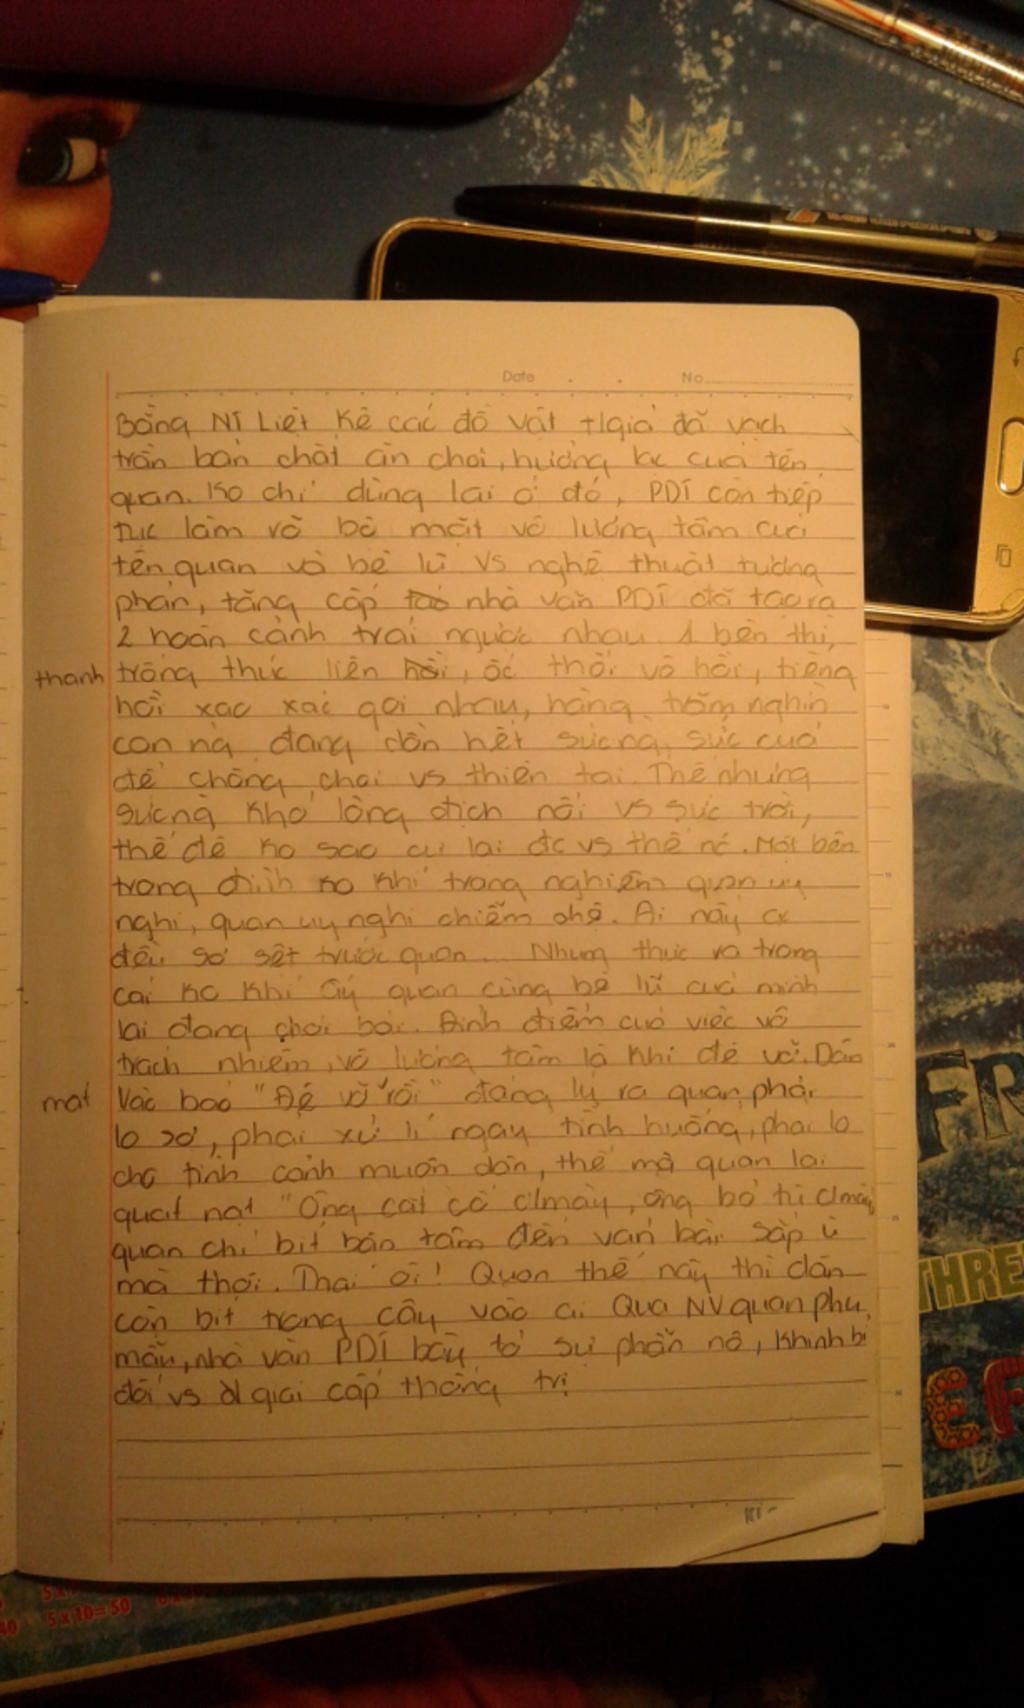 Date No
Bằng NT Liệt Kê các đồ vật t/giả đã vạch
trần bản chất ăn chơi, hưởng lạc của tên
quan. Ko chỉ dừng lại ở đó, PDT còn tiếp
tục làm rõ bộ mặt vô lương tâm của
tên quan và bè lũ vs nghệ thuật tương
phản, tăng cấp nhà văn PDT đã tạo ra
2 hoàn cảnh trái ngược nhau. 1 bên thì
trống thúc liên thanh, ốc thổi vô hồi, tiếng
hồi xao xác gọi nhau, hàng trăm nghìn
con ng đang dồn hết sức ng, sức của
để chống chọi vs thiên tai. Thế nhưng
sức ng khó lòng địch nổi vs sức trời,
thế đê ko sao cự lại đc vs thế nc. Một bên
trong đình ko khí trang nghiêm quan uy
nghi, quan uy nghi chiễm chệ. Ai nấy
đều sợ sệt trước quan... Nhưng thực ra trong
cái ko khí ấy quan cùng bè lũ của mình
lại đang chơi bài. Đỉnh điểm của việc vô
trách nhiệm, vô lương tâm là khi đê vỡ. Dân
mat vào báo "Đê vỡ rồi" đáng lý ra quan phải
lo sợ, phải xử lí ngay tình huống, phải lo
cho tình cảnh muôn dân, thế mà quan lại
quát nạt "Ông cắt cổ c/mày, ông bỏ tù c/mày
quan chỉ bit bận tâm đến ván bài sắp ù
mà thôi. Than ôi! Quan thế này thì dân
còn bit trông cậy vào ai. Qua NV quan phụ
mẫu, nhà văn PDT bày tỏ sự phẫn nộ, khinh bỉ
đối vs giai cấp thống trị
5 x 10 = 50
FR
THRE